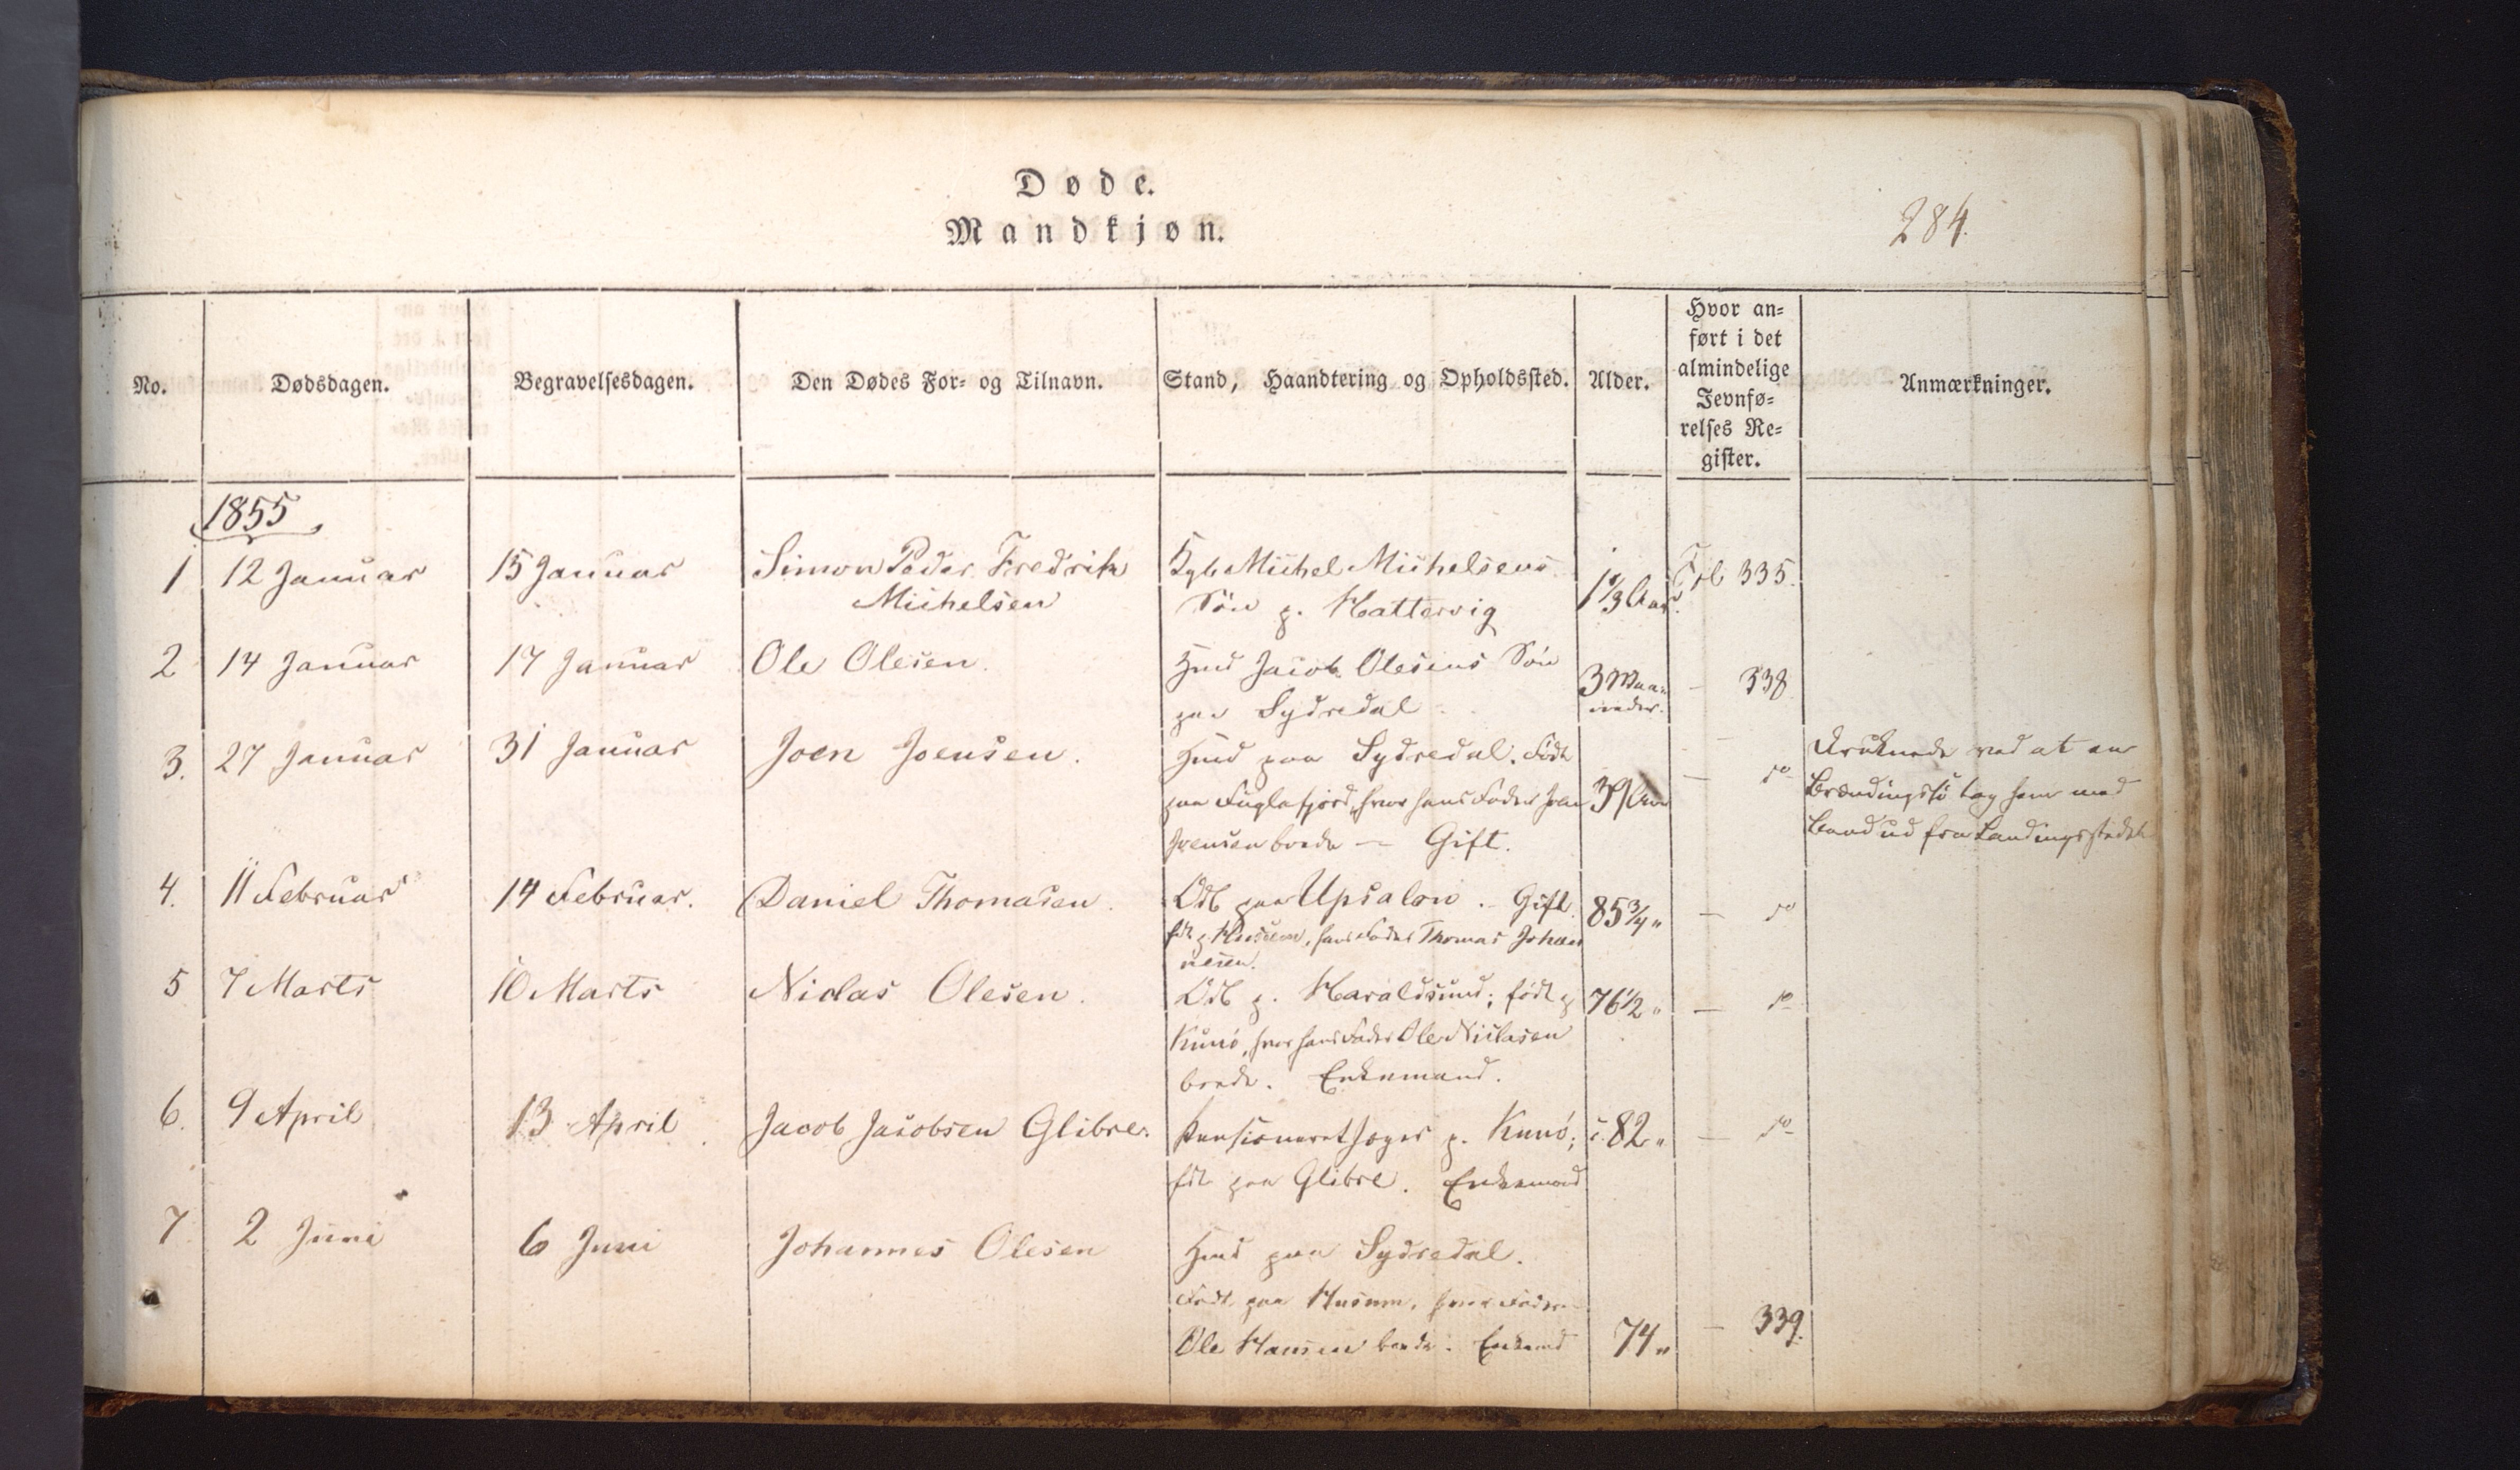 Døde.
Mandkjøn.
284.
No.
Dødsdagen.
Begravelsesdagen.
Den Dødes For- og Tilnavn.
Stand, Haandtering og Opholdssted.
Alder.
Hvor an-
ført i det
almindelige
Jevnfø-
relses Re-
gister.
Anmærkninger.
1855
1 12 Januar 15 Januar Simon Peder Fredrik
Michelsen
Kgb Michel Michelsens
Søn p. Hattervig
1 1/3 Aar.
Fol 335.
2 14 Januar 17 Januar Ole Olesen.
Huusmd Jacob Olesens Søn
paa Sydredal
3 Maa-
neder.
— 338
3. 27 Januar 31 Januar Joen Joensen.
Hmd paa Sydredal. Født
paa Fuglefjord, hvor hans Fader Joen
Joensen boede — Gift.
39 Aar
— do
Druknede ved at en
Brændingssø tog ham med
Baad ud fra Landingsstedet
4. 11 Februar 14 Februar. Daniel Thomasen.
Odb paa Upsalon. Gift.
fdt p Husum, hans Fader Thomas Johan
nesen.
85 3/4 "
— do
5 7 Marts 10 Marts Niclas Olesen.
Odb p. Haraldsund; født p
Kunø, hvor hans Fader Ole Niclasen
boede. Enkemand.
76 1/2 "
— do
6. 9 April 13 April Jacob Jacobsen Glibre.
Pensioneret Soger p. Kunø;
fdt paa Glibre. Enkemand
c. 82 "
— do
7 2 Juni 6 Juni Johannes Olesen
Hmd paa Sydredal.
Født paa Husum, hvor Faderen
Ole Hansen boede. Enkemd
74 "
— 339.